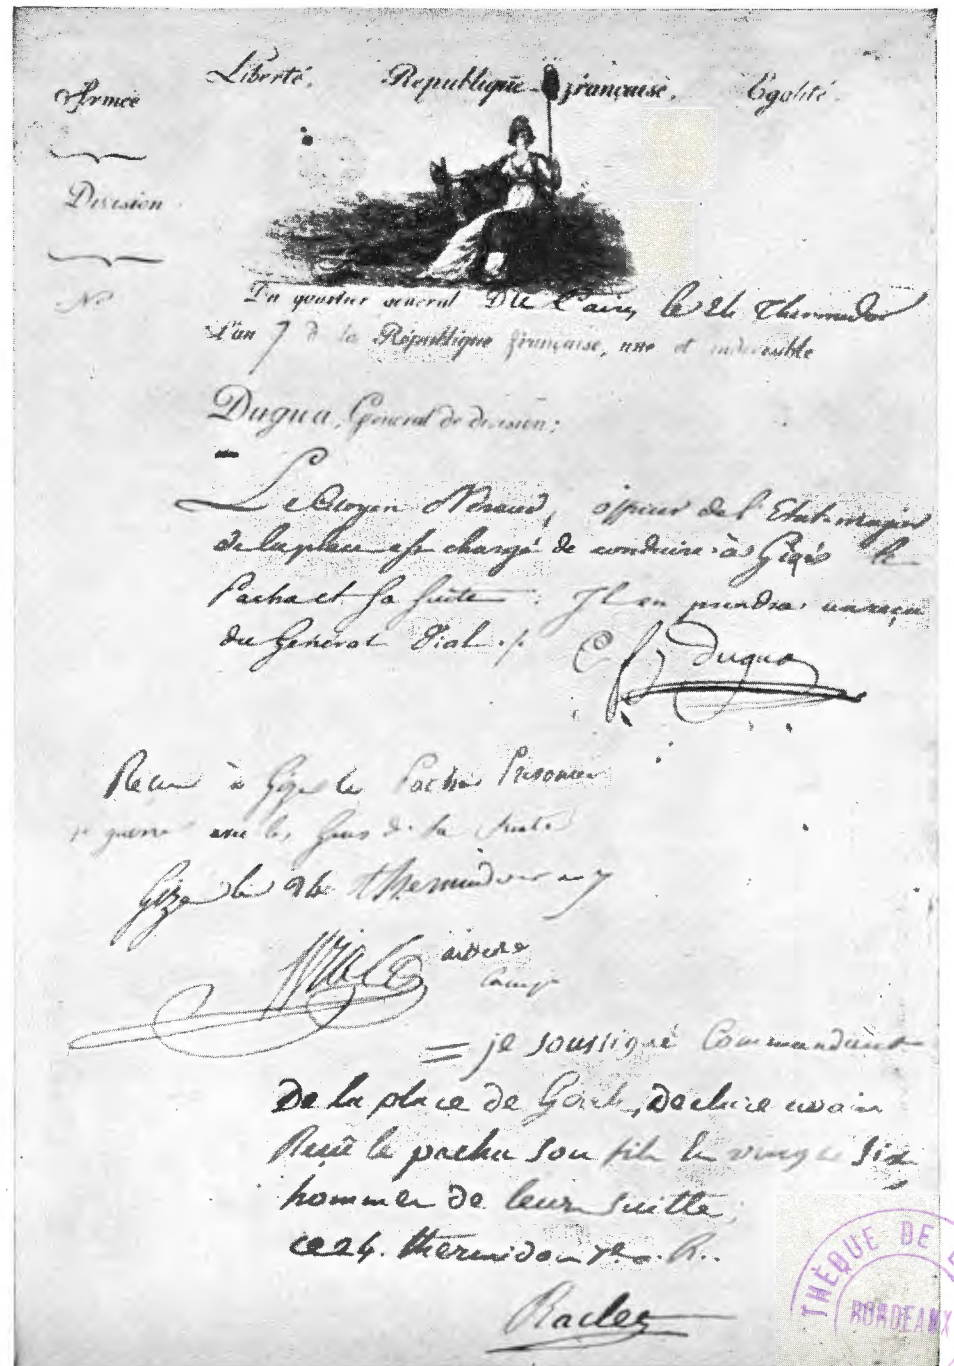 Liberté. Republique française. Egalité.
Armée
Division
N°
Du quartier général Du Caire, le 24 Thermidor
L'an 7 de la République française, une et indivisible
Dugua, Général de division;
Le Citoyen officier de l'Etat-major
de la place est chargé de conduire à Gizé le
Pacha et sa suite. Il en prendra un reçu
du Général Vial ./.
Dugua
Recu à Gize le Pacha Prisonier
de guerre avec les Gens de sa suite
Gize le 24 thermidor an 7
Viale aide de
camp
= je soussigné Commandant
De la place de Declare avoir
Reçû le pacha son fils et vingt Six
hommes de leur suitte,
ce 24. thermidor 7e. R..
THÈQUE DE
BORDEAUX